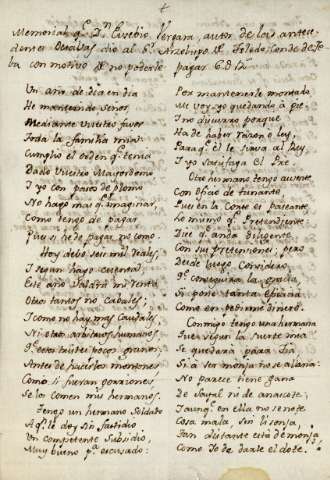 Memorial q.e D.n Eusebio Vergara autor de las antece-
dentes Decimas dio al S.r Arzobispo de Toledo, Conde de Te-
ba con motivo de no poderle pagar 6 D. r.s
Un año de dia en dia
He mantenido Señor
Mediante vuestro favor
Toda la familia mia:
Cumplio el orden q.e tenia
Dado vuestro Mayordomo
I yo con pasos de plomo
No hago mas q.e imaginar,
Como tengo de pagar
Pues si he de pagar, no como.
Hoy debo seis mil reales,
I segun hago cuentas
Este año saldrá mi renta
Otro tantos no cabales;
I como no hay mas caudales,
Ni otros arbitrios humanos
q.e estos tristes pocos granos,
Antes de hacerlos montones
Como si fueran gorriones,
Se los comen mis hermanos.
Tengo un hermano Soldado
A q.n le doy sin fastidio
Un competente Subsidio,
Muy bueno p.a escusado:
Por mantenerle montado
Me voy yo quedando à pie,
I no discurro porque
Ha de haber razon o ley,
Para q.e él le sirva al Rey,
I yo satisfaga el Pre.
Otro hermano tengo ausente
Con oficio de tunante
Pues en la Corte es paseante
Lo mismo q.e Pretendiente:
Dice q.e anda diligente
Con sus pretensiones; pero
Desde luego considero
q.e conseguirá la gracia,
Si pone tanta eficacia
Como en pedirme dinero.
Conmigo tengo una hermana
Pues siguen la suerte mia
Se quedará para tia
Si á ser monja no se allana:
No parece tiene gana
De sayal ni de anascote;
I aunq.e en ella no se note
Cosa mala, sin lisonja,
Tan distante está de monja
Como Yo de darle el dote.